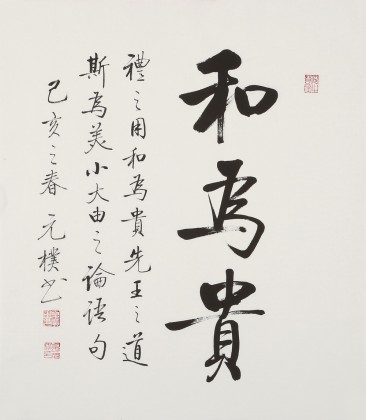 和為貴
禮之用和為貴先王之道
斯為美小大由之論語句
己亥之春元樸書